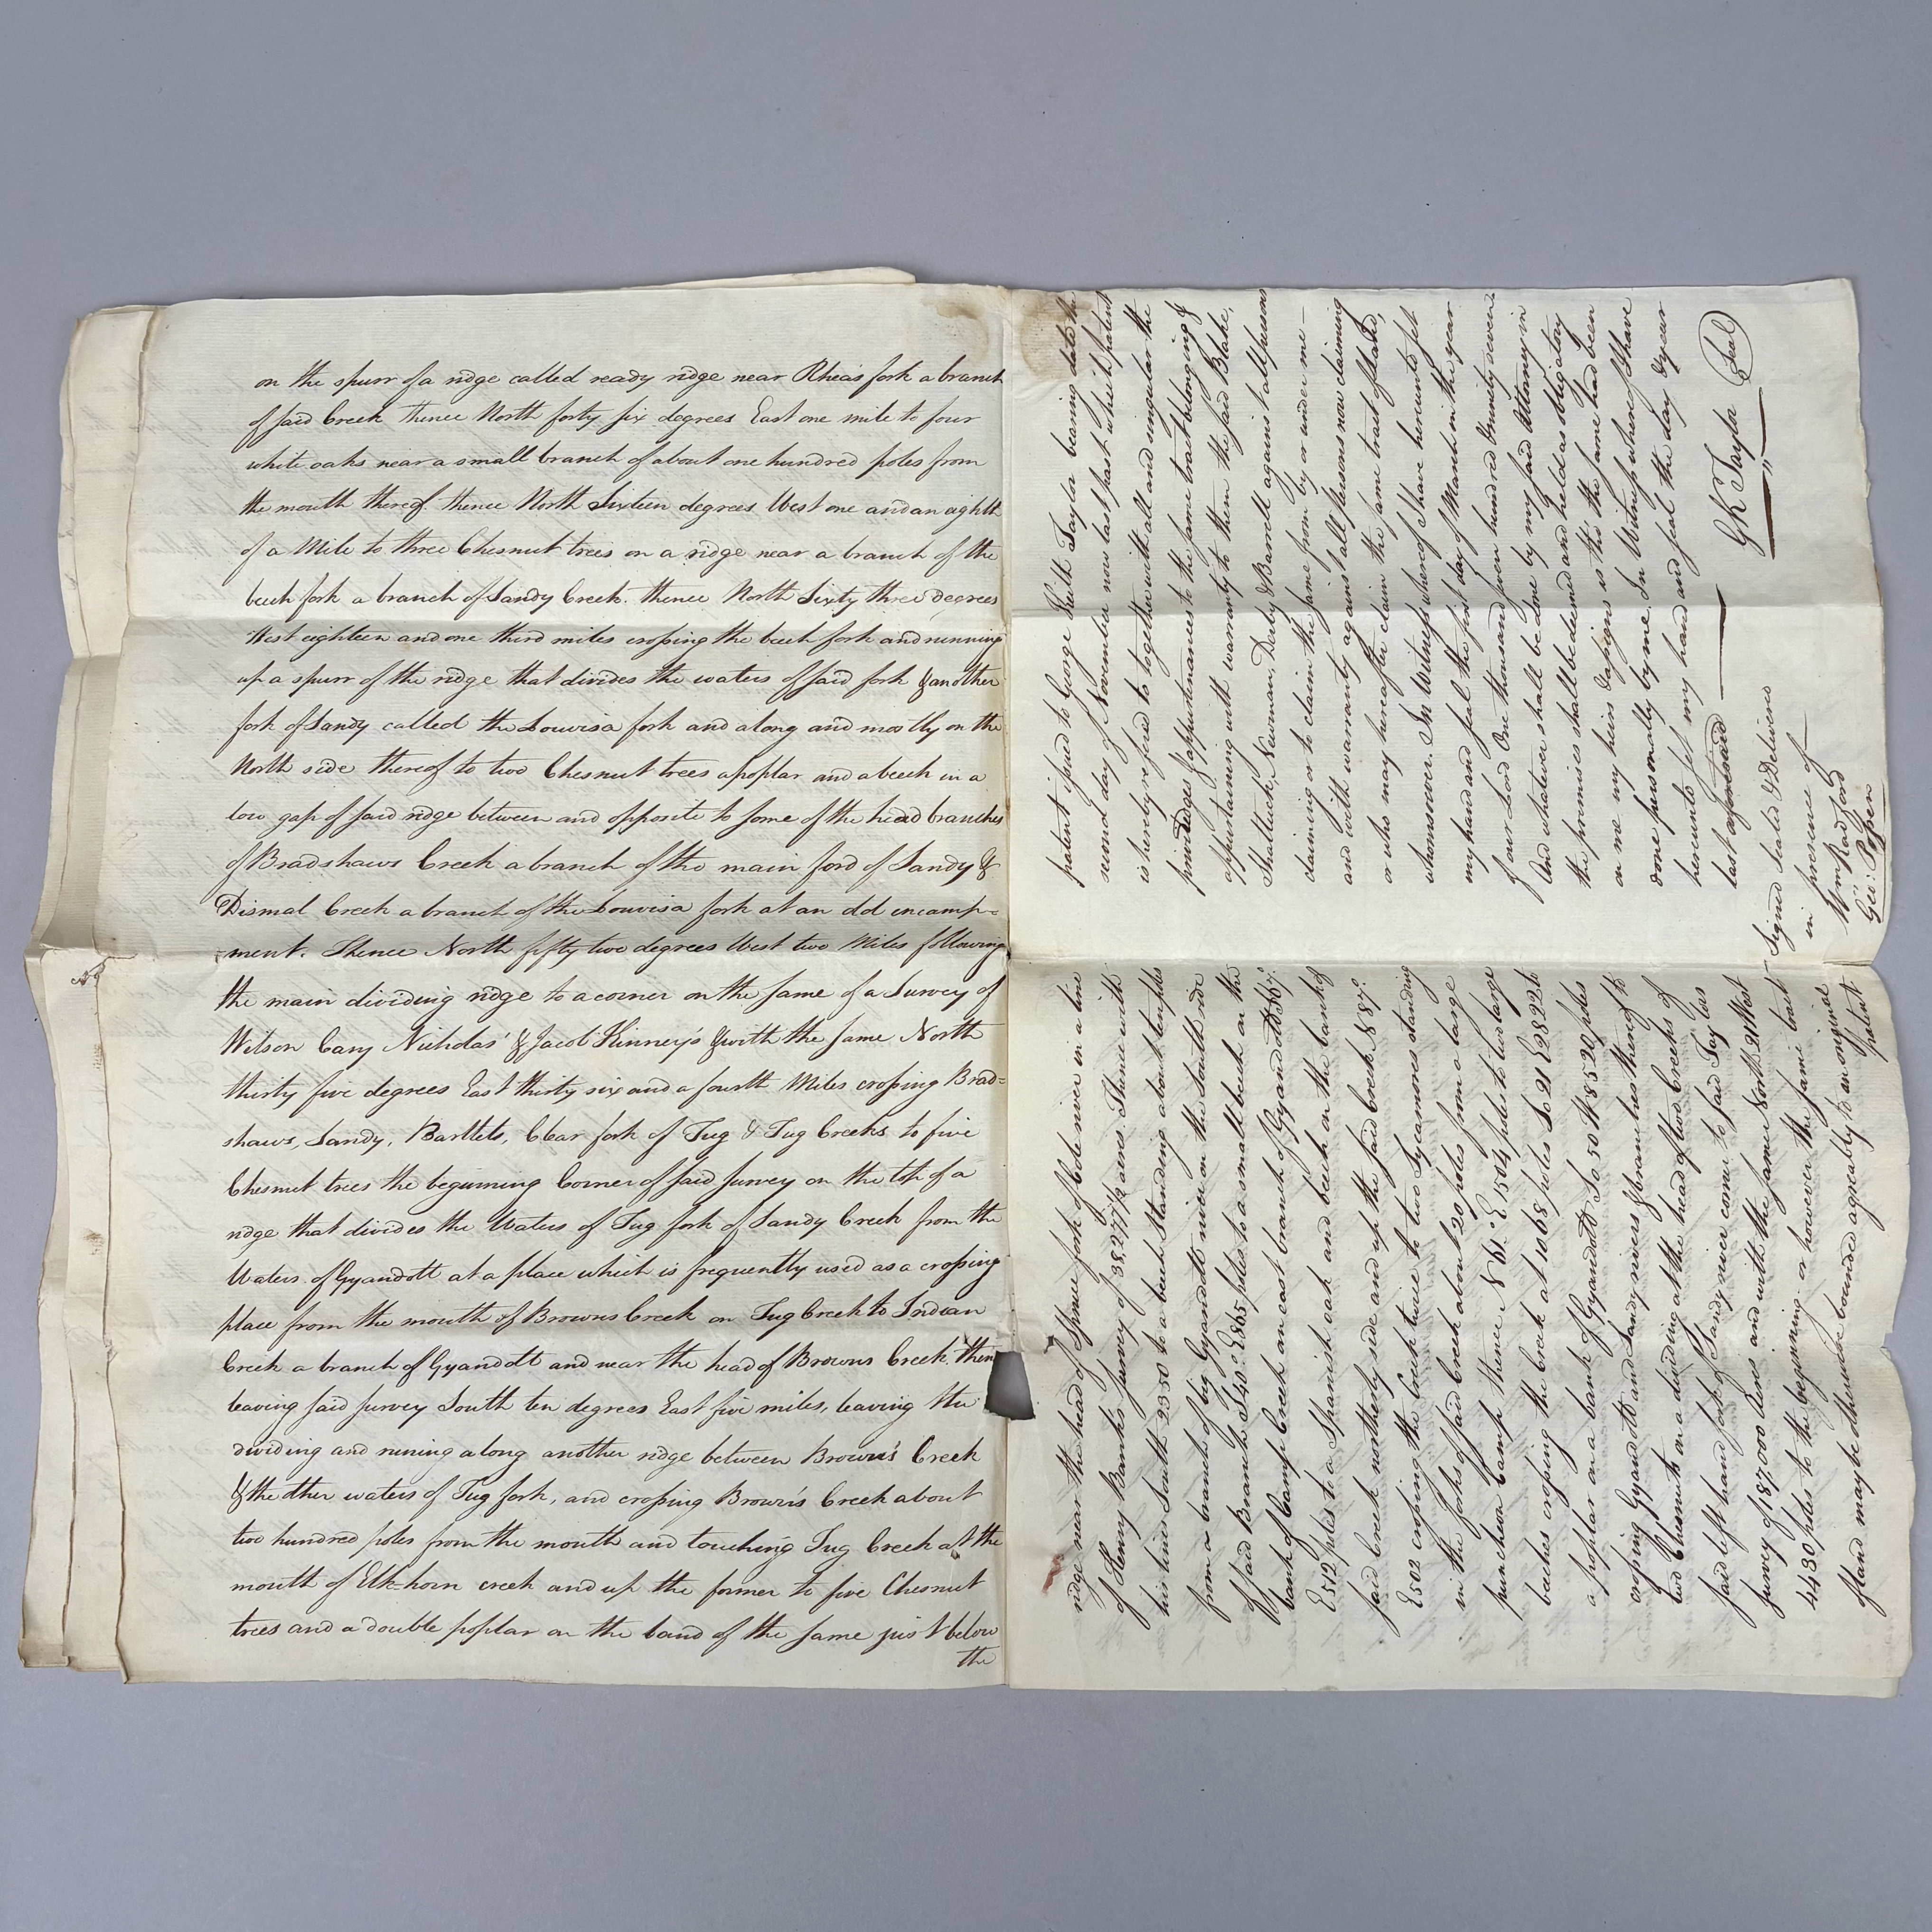 on the spurr of a ridge called ready ridge near Rheas fork a branch
of said Creek thence North forty six degrees East one mile to four
white oaks near a small branch of about one hundred poles from
the mouth thereof thence North Sixteen degrees West one and an eighth
of a Mile to three Chesnut trees on a ridge near a branch of the
beech fork a branch of Sandy Creek. thence North Sixty three degrees
West eighteen and one third miles crossing the beech fork and running
up a spurr of the ridge that divides the waters of said fork & another
fork of Sandy called the Louvisa fork and along and mostly on the
North side thereof to two Chesnut trees a poplar and a beech in a
low gap of said ridge between and opposite to some of the head branches
of Bradshaws Creek a branch of the main ford of Sandy &
Dismal Creek a branch of the Louvisa fork at an old encamp=
ment. Thence North fifty two degrees West two Miles following
the main dividing ridge to a corner on the same of a Survey of
Wilson Cary Nicholas' & Jacob Kinney's & with the same North
thirty five degrees East thirty six and a fourth Miles crossing Brad=
shaws, Sandy, Bartlets, Clear fork of Tug & Tug Creeks to five
Chesnut trees the beginning Corner of said survey on the top of a
ridge that divides the Waters of Tug fork of Sandy Creek from the
Waters of Gyandott at a place which is frequently used as a crossing
place from the mouth of Browns Creek on Tug Creek to Indian
Creek a branch of Gyandott and near the head of Browns Creek. then
leaving said survey South ten degrees East five miles, leaving the
dividing and runing along another ridge between Brown's Creek
& the other waters of Tug fork, and crossing Brown's Creek about
two hundred poles from the mouth and touching Tug Creek at the
mouth of Elk-horn creek and up the former to five Chesnut
trees and a double poplar on the band of the same just below
the
ridge near the head of Spruce fork of Cole river in a line
of Henry Banks survey of 38,277 1/2 acres. Thence with
his line South 23 50 to a beech Standing about ten poles
from a branch of big Gyandott river on the South side
of said Branch S 40° E 865 poles to a small beech on the
bank of Camp Creek an east branch of Gyandott S 67°
E 512 poles to a Spanish oak and beech on the bank of
said Creek northerly side and up the said Creek N 87°
E 502 crossing the Creek twice to two Sycamores standing
in the forks of said Creek about 20 poles from a large
puncheon Camp thence N 61° E 1504 poles to two large
beeches crossing the Creek at 1068 poles So 21 E 2822 to
a poplar on a bank of Gyandott So 50 W 8520 poles
crossing Gyandott and Sandy rivers & branches thereof to
two Chesnuts on a dividing at the head of two Creeks of
said left hand fork of Sandy river corner to said Taylors
survey of 187,000 Acres and with the same North 21 West
4430 poles to the beginning - or however the same tract
of land may be otherwise bounded agreeably to an original
patent
patent issued to George Keith Taylor bearing date the
second day of November now last past which patent
is hereby refered to together with all and singular the
priviledges & appurtenances to the same tract belonging &
appertaining with warranty to them the said Blake,
Shattuck, Newman, Derby & Barrell against all persons
claiming or to claim the same from by or under me -
and with warranty against all persons now claiming
or who may hereafter claim the same tract of land,
whomsoever. In Witness whereof I have hereunto set
my hand and seal the first day of March in the year
of our Lord One thousand seven hundred & ninety seven
And whatever shall be done by my said Attorney in
the premises shall be deemed and held as obligatory
on me my heirs & assigns as tho' the same had been
done personally by me. In Witness whereof I have
hereunto set my hand and seal the day & year
last aforesaid
GK Taylor Seal
Signed Sealed & Delivered
in presence of
Wm Radford
Geo: Poppen